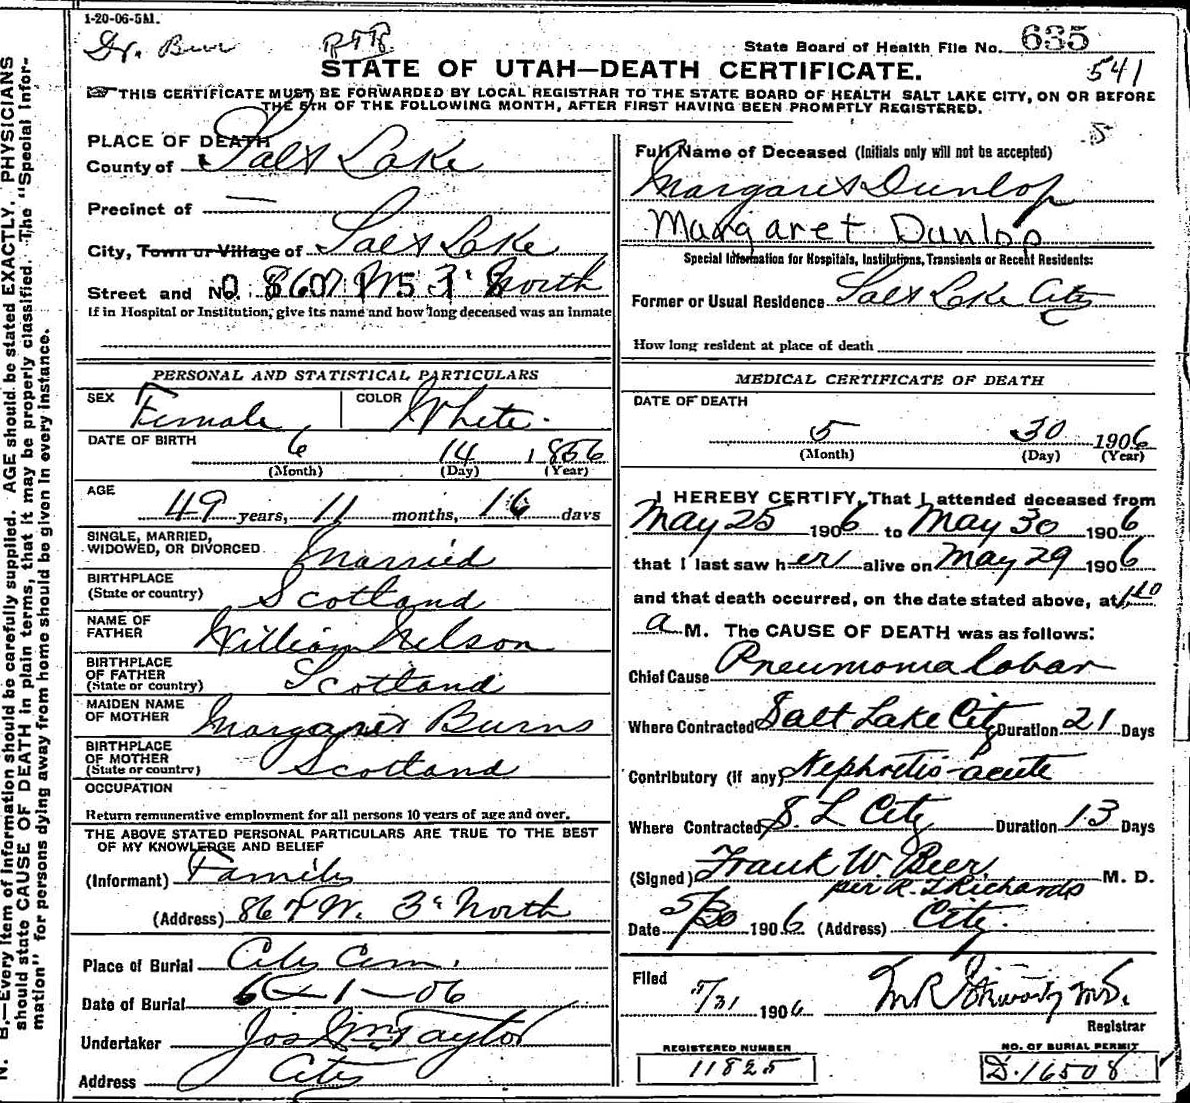 1-20-06-5M.
Dr. Beer
State Board of Health File No. 635
541
STATE OF UTAH—DEATH CERTIFICATE.
THIS CERTIFICATE MUST BE FORWARDED BY LOCAL REGISTRAR TO THE STATE BOARD OF HEALTH SALT LAKE CITY, ON OR BEFORE
THE 5TH OF THE FOLLOWING MONTH, AFTER FIRST HAVING BEEN PROMPTLY REGISTERED.
N. B.—Every item of information should be carefully supplied. AGE should be stated EXACTLY. PHYSICIANS
should state CAUSE OF DEATH in plain terms, that it may be properly classified. The "Special Infor-
mation" for persons dying away from home should be given in every instance.
PLACE OF DEATH
County of Salt Lake
Precinct of —
City, Town or Village of Salt Lake
Street and No. North
If in Hospital or Institution, give its name and how long deceased was an inmate
PERSONAL AND STATISTICAL PARTICULARS
SEX Female COLOR White.
DATE OF BIRTH
6 14 1856
(Month) (Day) (Year)
AGE
49 years, 11 months, 16 days
SINGLE, MARRIED,
WIDOWED, OR DIVORCED Married
BIRTHPLACE
(State or country) Scotland
NAME OF
FATHER William Nelson
BIRTHPLACE
OF FATHER
(State or country) Scotland
MAIDEN NAME
OF MOTHER Margaret Burns
BIRTHPLACE
OF MOTHER
(State or country) Scotland
OCCUPATION
Return remunerative employment for all persons 10 years of age and over.
THE ABOVE STATED PERSONAL PARTICULARS ARE TRUE TO THE BEST
OF MY KNOWLEDGE AND BELIEF
(Informant) Family
(Address) 867 W. 3d North
Place of Burial City Cem.
Date of Burial 6-1-06
Undertaker Jos Wm Taylor
Address City
5
Full Name of Deceased (Initials only will not be accepted)
Margaret Dunlop
Margaret Dunlop
Special Information for Hospitals, Institutions, Transients or Recent Residents:
Former or Usual Residence Salt Lake City
How long resident at place of death
MEDICAL CERTIFICATE OF DEATH
DATE OF DEATH
5 30 1906
(Month) (Day) (Year)
I HEREBY CERTIFY, That I attended deceased from
May 25 1906 to May 30 1906
that I last saw her alive on May 29 1906
and that death occurred, on the date stated above, at 1:10
a M. The CAUSE OF DEATH was as follows:
Chief Cause Pneumonia lobar
Where Contracted Salt Lake City Duration 21 Days
Contributory (if any) Nephritis-acute
Where Contracted S. L City Duration 13 Days
(Signed) Frank W. Beer M. D.
per A. L Richards
Date 5/30 1906 (Address) City.
Filed 5/31 1906
Registrar
REGISTERED NUMBER
11825
NO. OF BURIAL PERMIT
D.16508